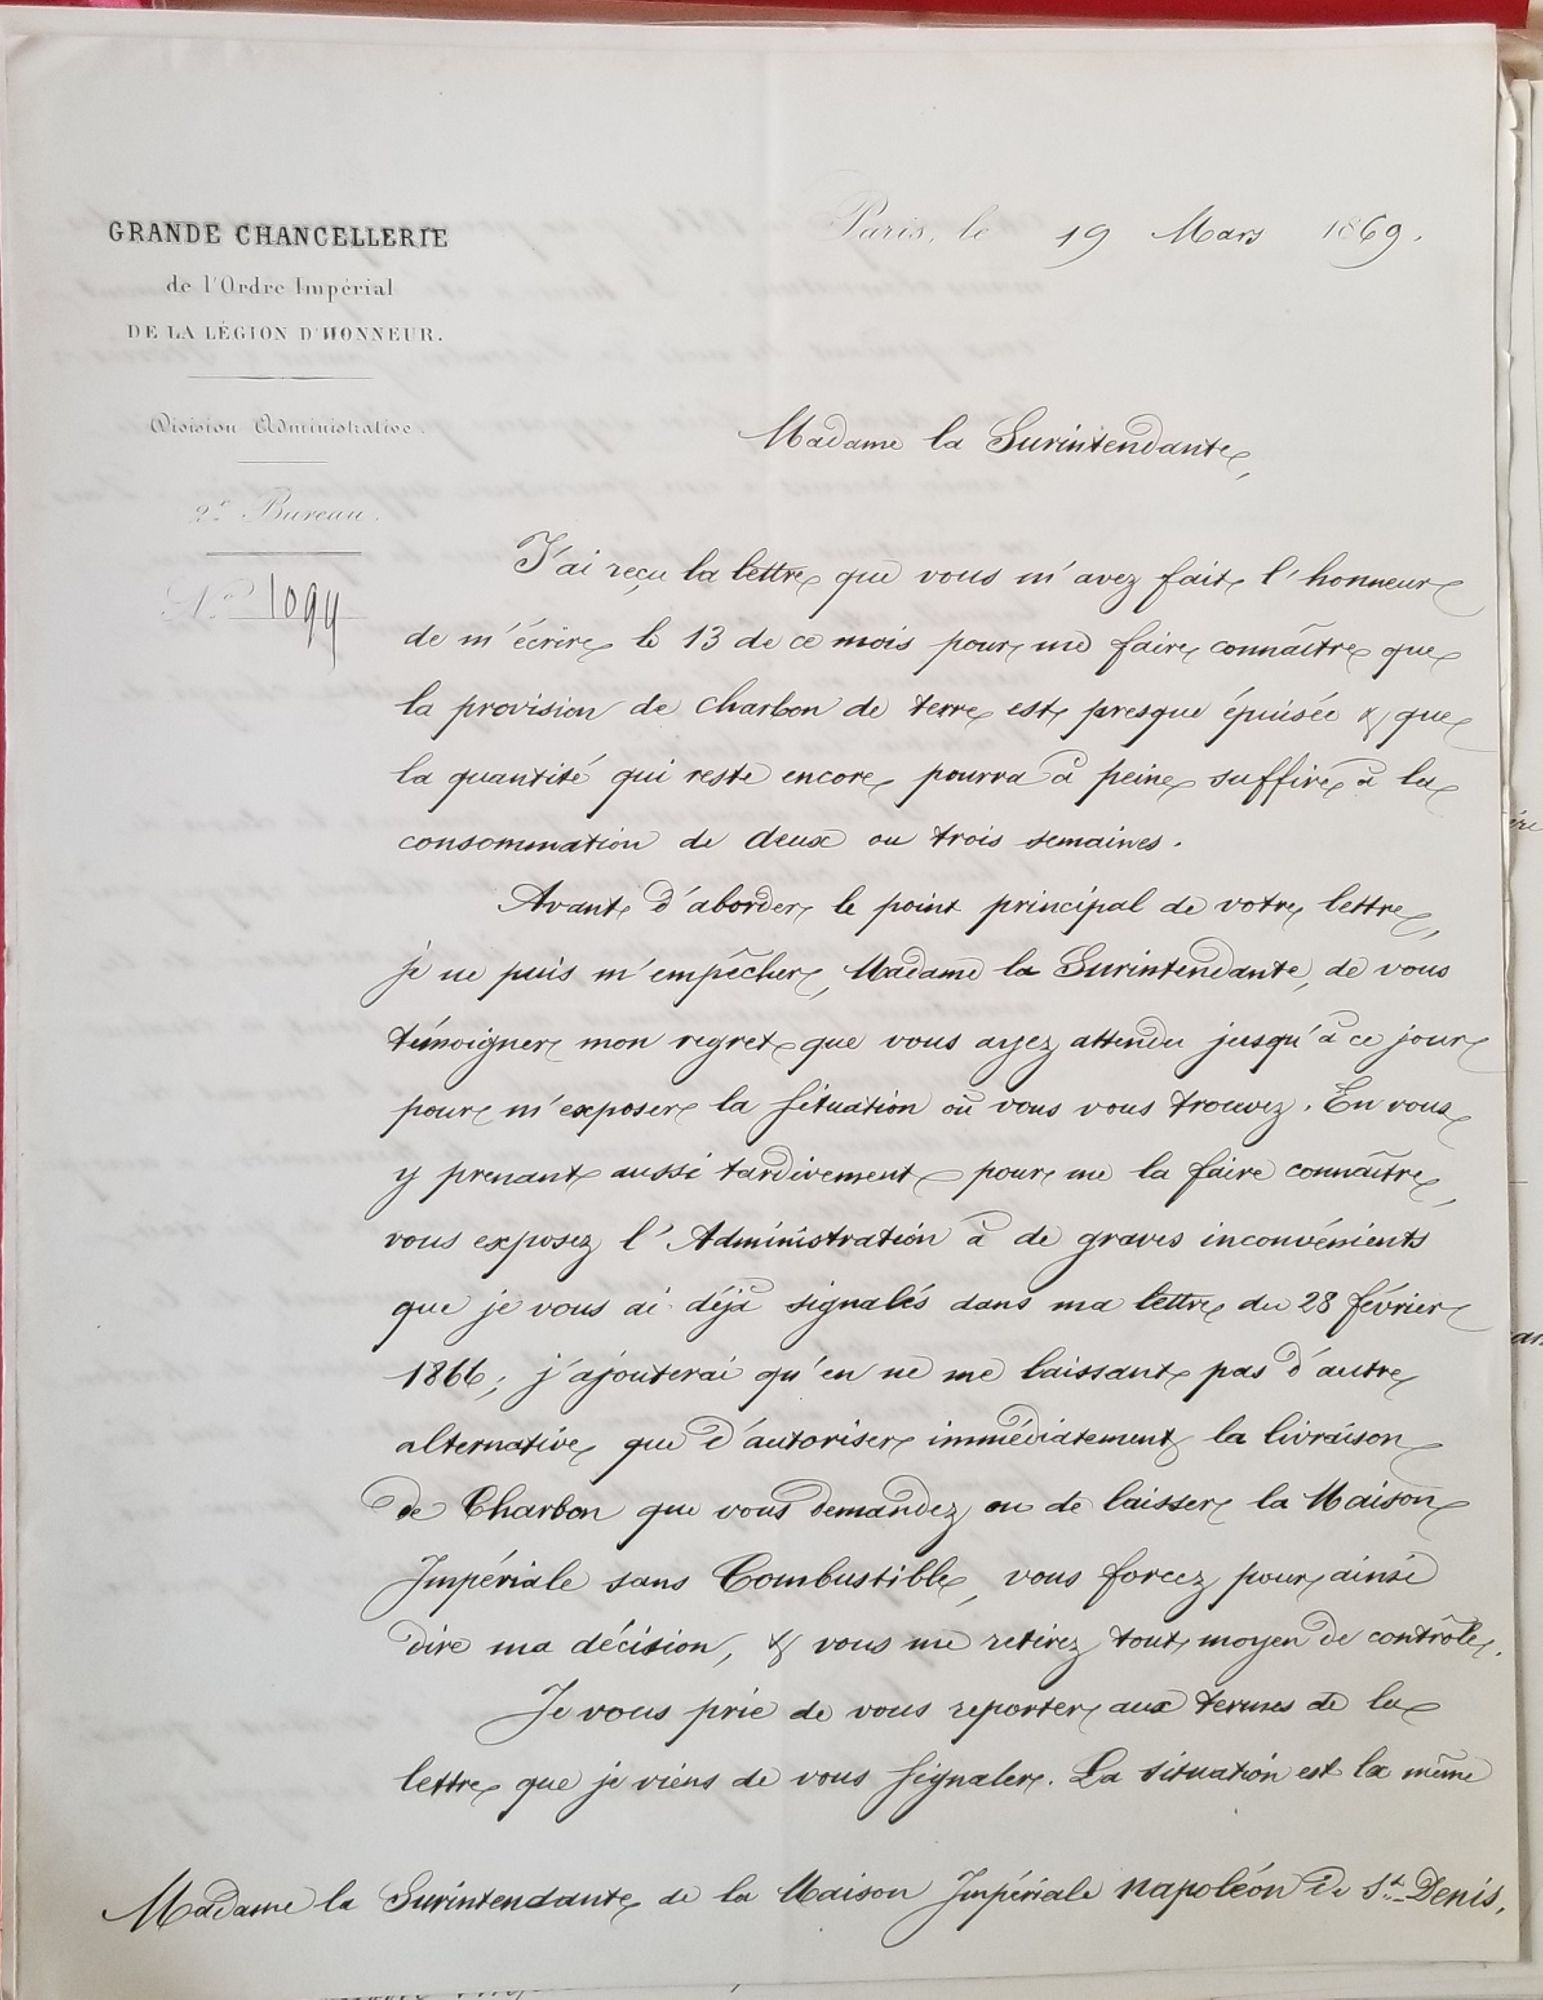 GRANDE CHANCELLERIE
de l'Ordre Impérial
DE LA LÉGION D'HONNEUR.
Division Administrative.
2e Bureau.
No 1099
Paris, le 19 Mars 1869.
Madame la Surintendante,
J'ai reçu la lettre que vous m'avez fait l'honneur
de m'écrire le 13 de ce mois pour me faire connaître que
la provision de charbon de terre est presque épuisée & que
la quantité qui reste encore pourra à peine suffire à la
consommation de deux ou trois semaines.
Avant d'aborder le point principal de votre lettre,
je ne puis m'empêcher, Madame la Surintendante, de vous
témoigner mon regret que vous ayez attendu jusqu'à ce jour
pour m'exposer la situation où vous vous trouvez. En vous
y prenant aussi tardivement pour me la faire connaître,
vous exposez l'Administration à de graves inconvénients
que je vous ai déjà signalés dans ma lettre du 28 février
1866; j'ajouterai qu'en ne me laissant pas d'autre
alternative que d'autoriser immédiatement la livraison
de Charbon que vous demandez ou de laisser la Maison
Impériale sans Combustible, vous forcez pour ainsi
dire ma décision, & vous me retirez tout moyen de contrôle.
Je vous prie de vous reporter aux termes de la
lettre que je viens de vous signaler. La situation est la même
Madame la Surintendante de la Maison Impériale Napoléon de St-Denis.